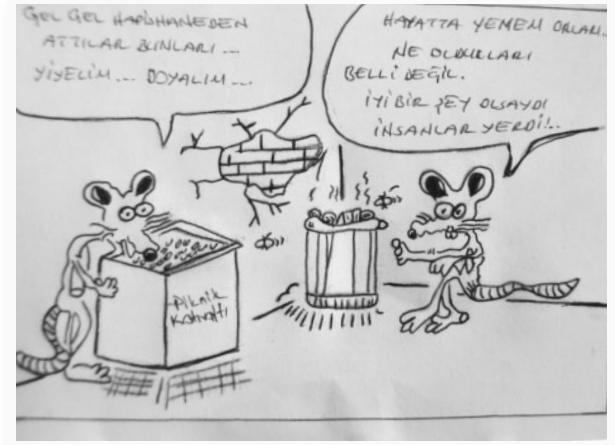 GEL GEL HAPİSHANEDEN
ATTILAR BUNLARI...
YİYELİM... DOYALIM...
HAYATTA YEMEM ONLARI..
NE OLDUKLARI
BELLİ DEĞİL.
İYİ BİR ŞEY OLSAYDI
İNSANLAR YERDİ!..
Piknik
Kahvaltı